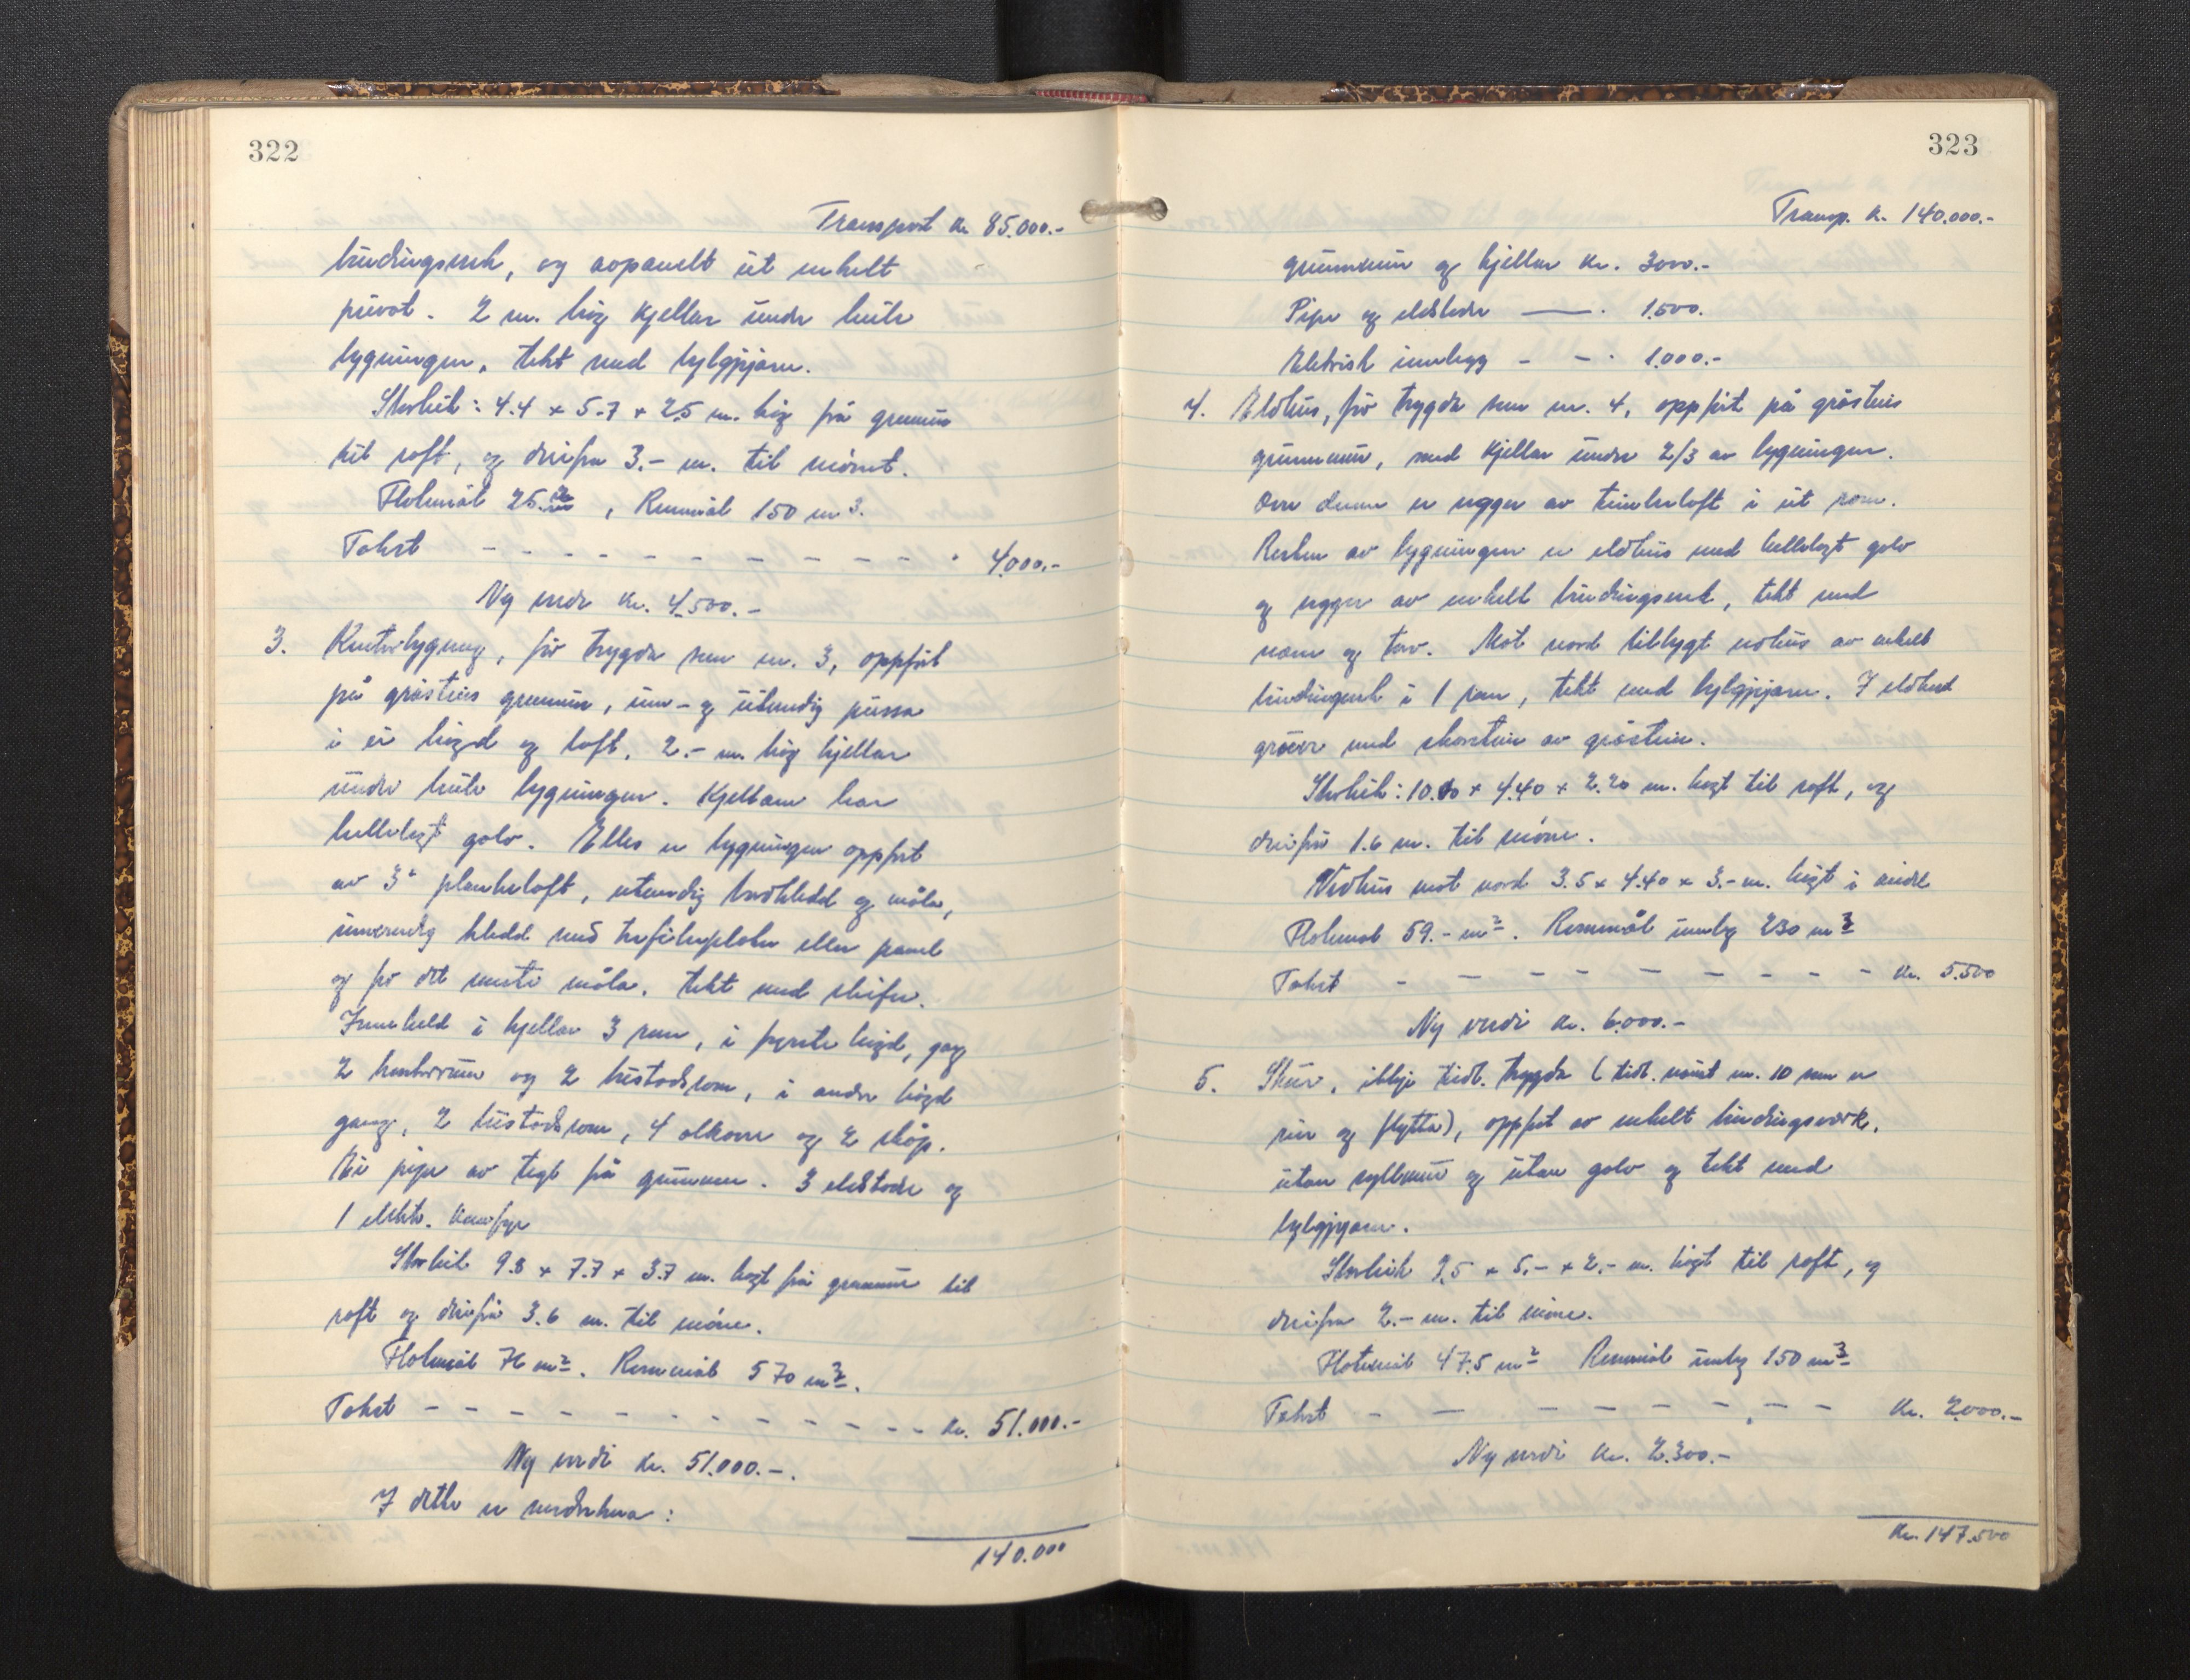 322
Transport kr. 85.000.-
bindingsverk, og aopanelt ut enkelt
privat. 2 m. høg kjellar under heile
bygningen, tekt med bylgjejarn.
Storleik: 4.4 x 5.7 x 2.5 m. høg frå grunnmur
til raft, og derifra 3.- m. til mønet.
Flatemål 25 m², Rommål 150 m³.
Takst - - - - - - - - - - - 4.000.-
Ny verdi kr. 4.500.-
3. Kontorbygning, før trygda som nr. 3, oppført
på gråsteins grunnmur, inn- og utvendig pussa
i ei høgd og loft. 2.- m. høg kjellar
under heile bygningen. Kjellaren har
hellelagt golv. Elles er bygningen oppført
av 3" plankeloft, utvendig bordkledd og måla,
innvendig kledd med trefiberplater eller panel
og for det meste måla, tekt med skifer.
Inneheld i kjellar 3 rom, i første høgd, gang
2 kontorrum og 2 bustadsrom, i andre høgd
gang, 2 bustadsrom, 4 alkover og 2 skåp.
Ei pipe av tegl frå grunnen. 3 eldstader og
1 elektr. komfyr
Storleik 9.8 x 7.7 x 3.7 m. høgt frå grunnmur til
raft og derifrå 3.6 m. til møne.
Flatemål 76 m². Rommål 570 m³.
Takst - - - - - - - - - - - - kr. 51.000.-
Ny verdi kr. 51.000.-.
I dette er medrekna:
140.000
323
Transp. kr. 140.000.-
grunnmur og kjellar kr. 3000.-
Pipe og eldstader — . 1.500.
Elektrisk innlegg - - . 1.000.-
4. Eldhus, før trygda som nr. 4, oppført på gråsteins
grunnmur, med kjellar under 2/3 av bygningen.
Over denne er vegger av timberloft i eit rom.
Resten av bygningen er eldhus med hellelagt golv
og vegger av enkelt bindingsverk, tekt med
og torv. Mot nord tilbygt vedhus av enkelt
bindingsverk i 1 rom, tekt med bylgjejarn. I eldhuset
grover med skorstein av gråstein.
Storleik: 10.00 x 4.40 x 2.20 m. høgt til raft, og
derifrå 1.6 m. til møne.
Vedhus mot nord 3.5 x 4.40 x 3.- m. høgt i midel
Flatemål 59.- m². Rommål innleg 230 m³
Takst - - - - - - - - - kr. 5.500
Ny verdi kr. 6.000.-
5. Skur, ikkje tidl. trygda (tidl. naust nr. 10 som er
rive og flytta), oppført av enkelt bindingsverk,
utan syllmur og utan golv og tekt med
bylgjejarn.
Storleik 9.5 x 5.- x 2.- m. høgt til raft, og
derifra 2.- m. til møne.
Flatemål 47.5 m² Rommål innleg 150 m³
Takst - - - - - - - - - kr. 2.000.-
Ny verdi kr. 2.300.-
kr. 147.500